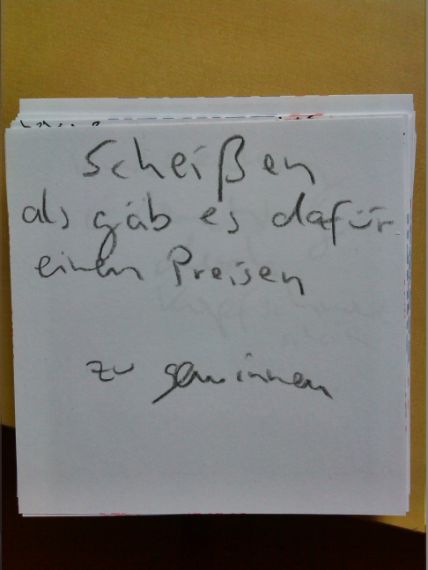 Scheißen
als gäb es dafür
einen Preisen
zu gewinnen